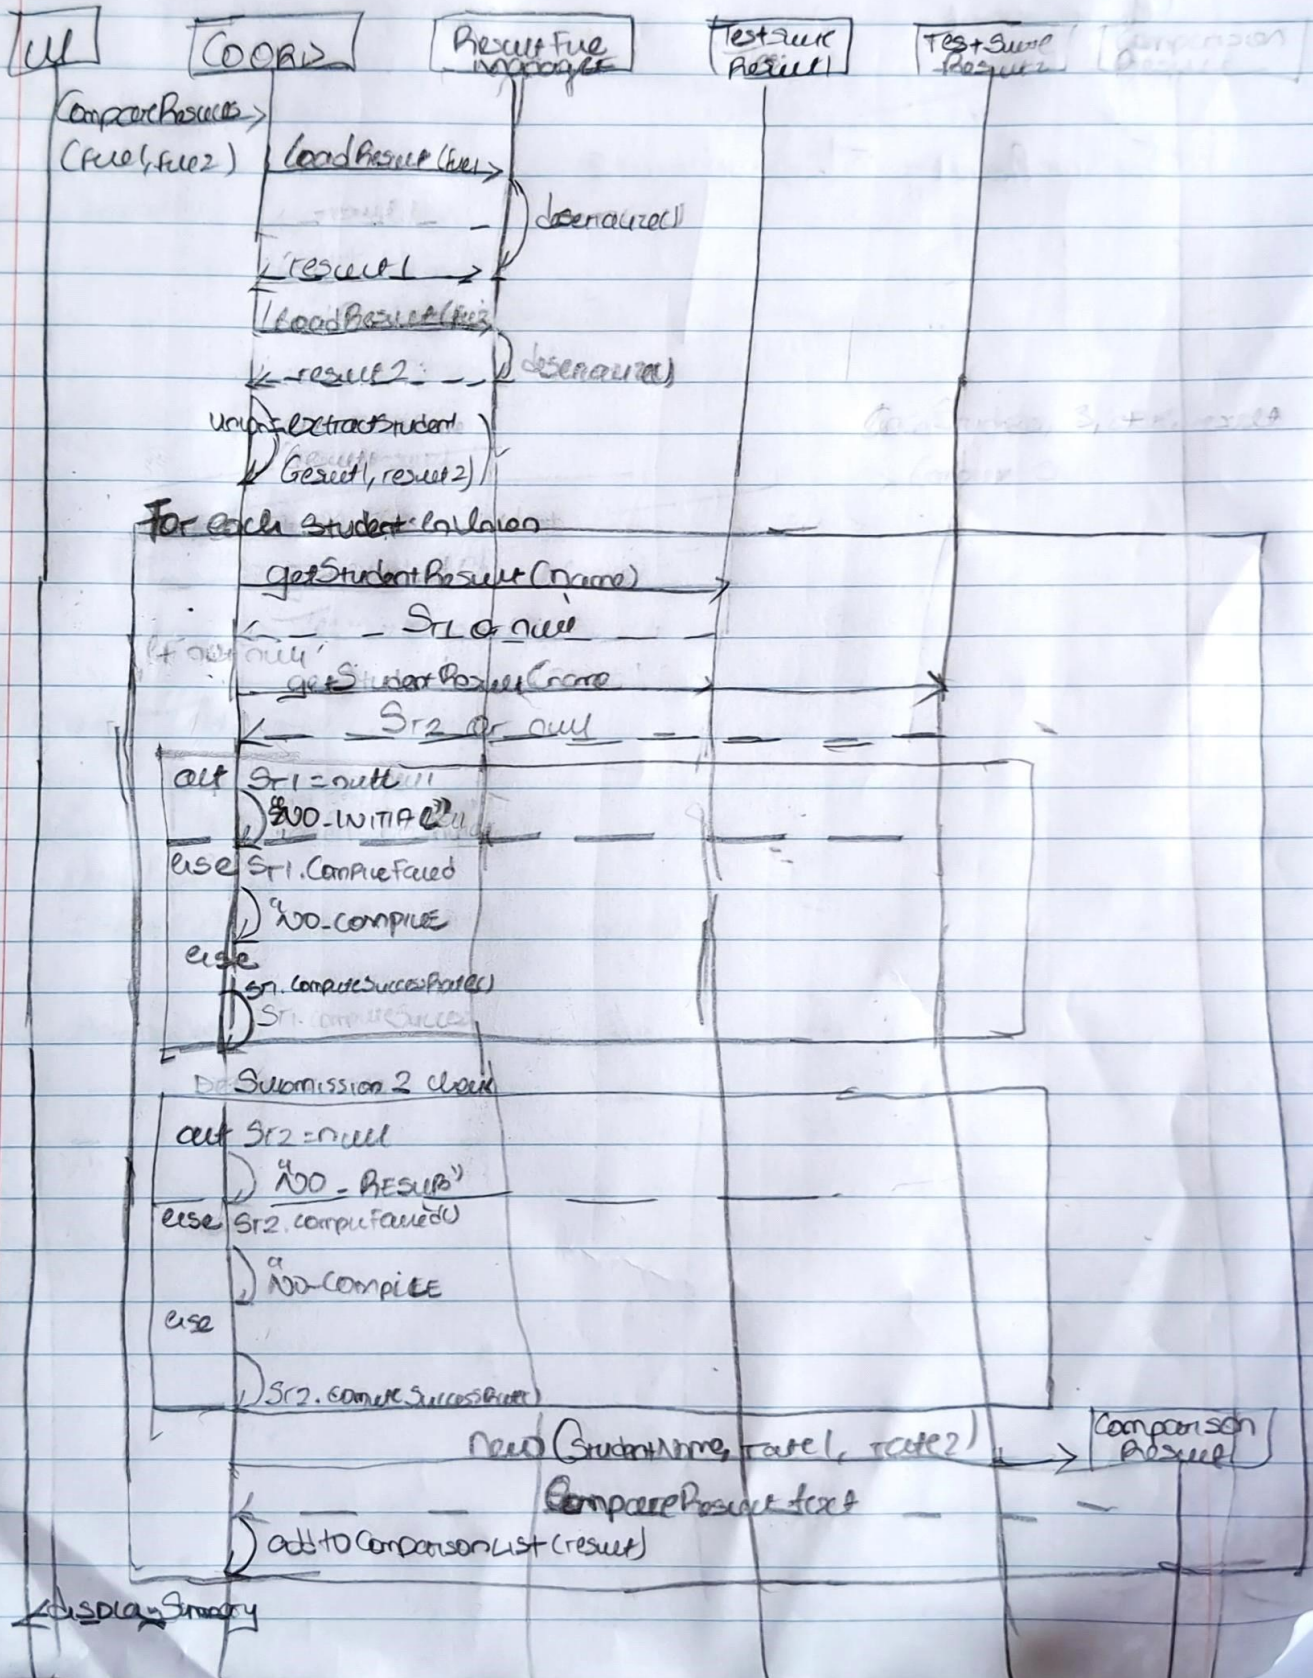 UI
COORD
ResultFile
Manager
TestSuite
Result1
TestSuite
Result2
Comparison
Result
CompareResults
(file1, file2)
LoadResult (file1
deserialize()
result1
LoadResult (file2
result2
deserialize()
union=extractStudent
(result1, result2)
For each student in Union
getStudentResult(name)
Sr1 or null
if not null
getStudentResult(name
Sr2 or null
alt Sr1 = null
"NO_INITIAL"
else Sr1.CompileFailed
"NO-COMPILE
else
Sr1.computeSuccessRate()
Sr1.computeSuccess
Submission 2 check
alt Sr2=null
"NO-RESUB"
else Sr2.compileFailed()
"NO-COMPILE
else
Sr2.computeSuccessRate()
new (StudentName, rate1, rate2)
Comparison
Result
CompareResult text
addtoComparisonList (result)
displaySummary